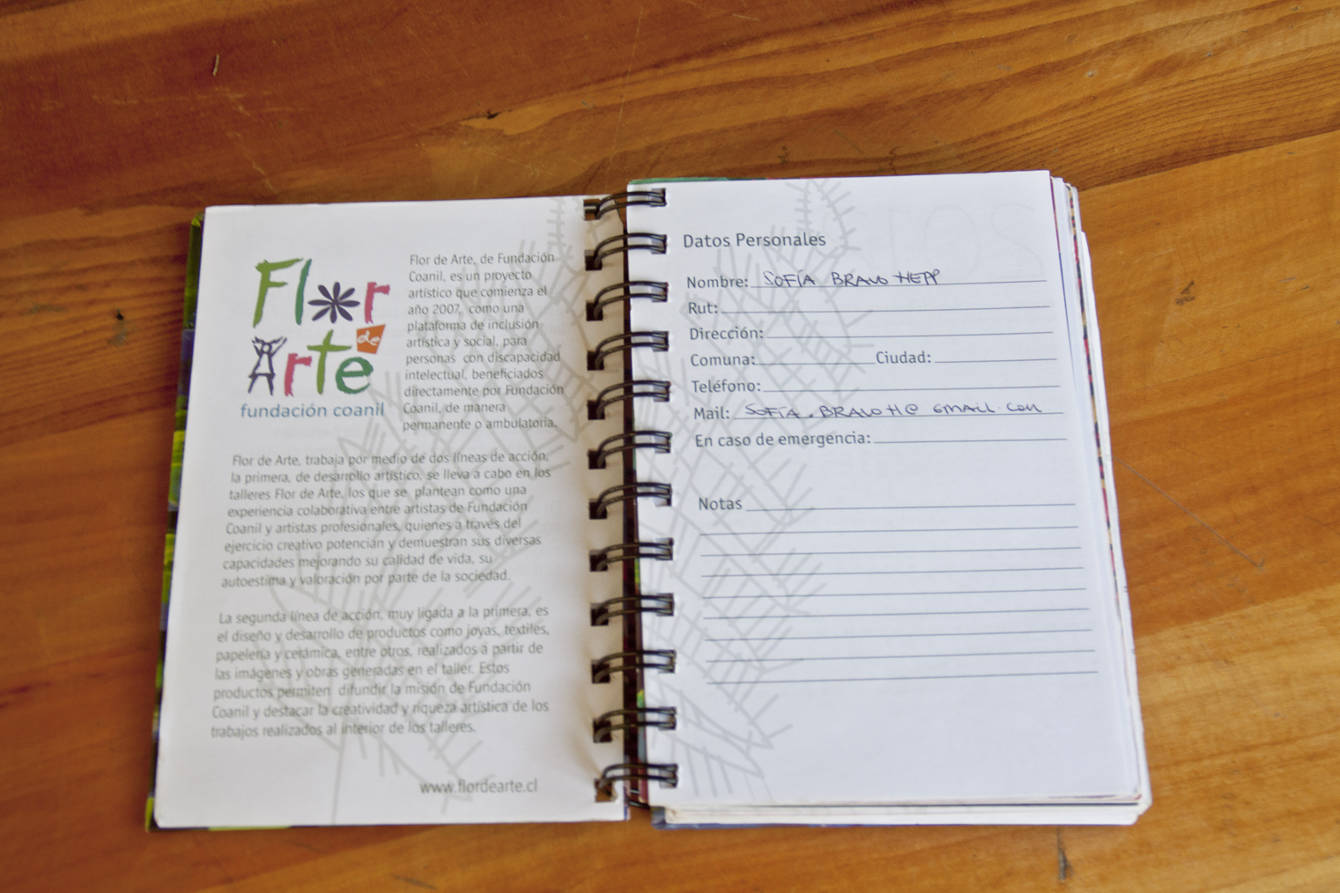 Flor
de
Arte
fundación coanil
Flor de Arte, de Fundación
Coanil, es un proyecto
artístico que comienza el
año 2007, como una
plataforma de inclusión
artística y social, para
personas con discapacidad
intelectual, beneficiados
directamente por Fundación
Coanil, de manera
permanente o ambulatoria.
Flor de Arte, trabaja por medio de dos líneas de acción,
la primera, de desarrollo artístico, se lleva a cabo en los
talleres Flor de Arte, los que se plantean como una
experiencia colaborativa entre artistas de Fundación
Coanil y artistas profesionales, quienes a través del
ejercicio creativo potencian y demuestran sus diversas
capacidades mejorando su calidad de vida, su
autoestima y valoración por parte de la sociedad.
La segunda línea de acción, muy ligada a la primera, es
el diseño y desarrollo de productos como joyas, textiles,
papelería y cerámica, entre otros, realizados a partir de
las imágenes y obras generadas en el taller. Estos
productos permiten difundir la misión de Fundación
Coanil y destacar la creatividad y riqueza artística de los
trabajos realizados al interior de los talleres.
www.flordearte.cl
Datos Personales
Nombre: SOFÍA BRAVO HEPP
Rut:
Dirección:
Comuna: Ciudad:
Teléfono:
Mail: SOFIA.BRAVOH@GMAIL.COM
En caso de emergencia:
Notas